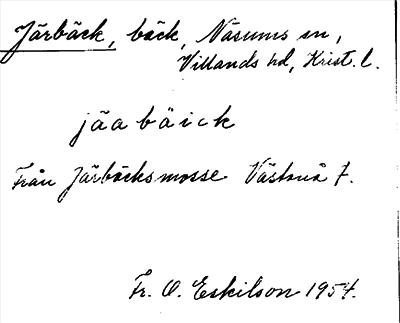 Järbäck, bäck, Näsums sn,
Villands hd, Krist. l.
jäa bäick
Från Järbäcksmosse Västanå f.
Fr. O. Eskilson 1954.